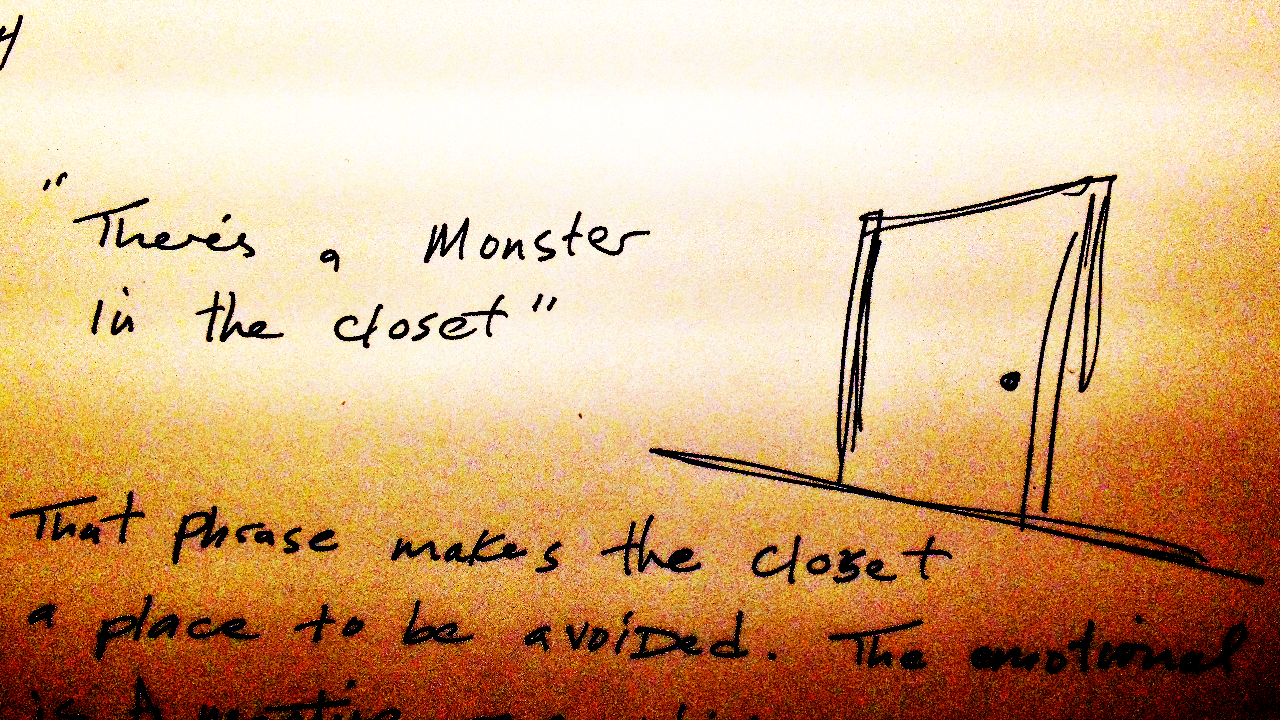 y
"There's a Monster
in the closet"
That phrase makes the closet
a place to be avoided. The emotional
is A